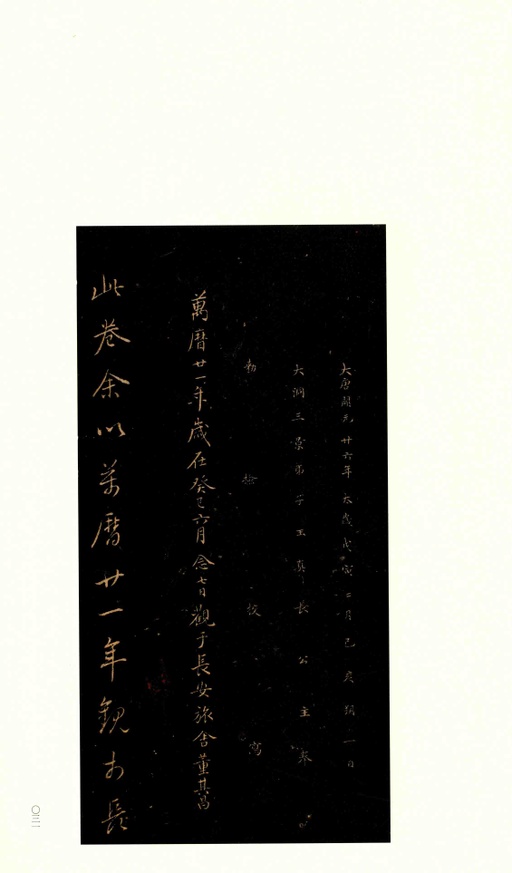 大唐開元廿六年太歲戊寅二月己亥朔一日
大洞三景弟子玉真長公主奉
勑檢校寫
萬曆廿一年歲在癸巳六月念七日觀于長安旅舍董其昌
此卷余以萬曆廿一年觀於長
〇三一